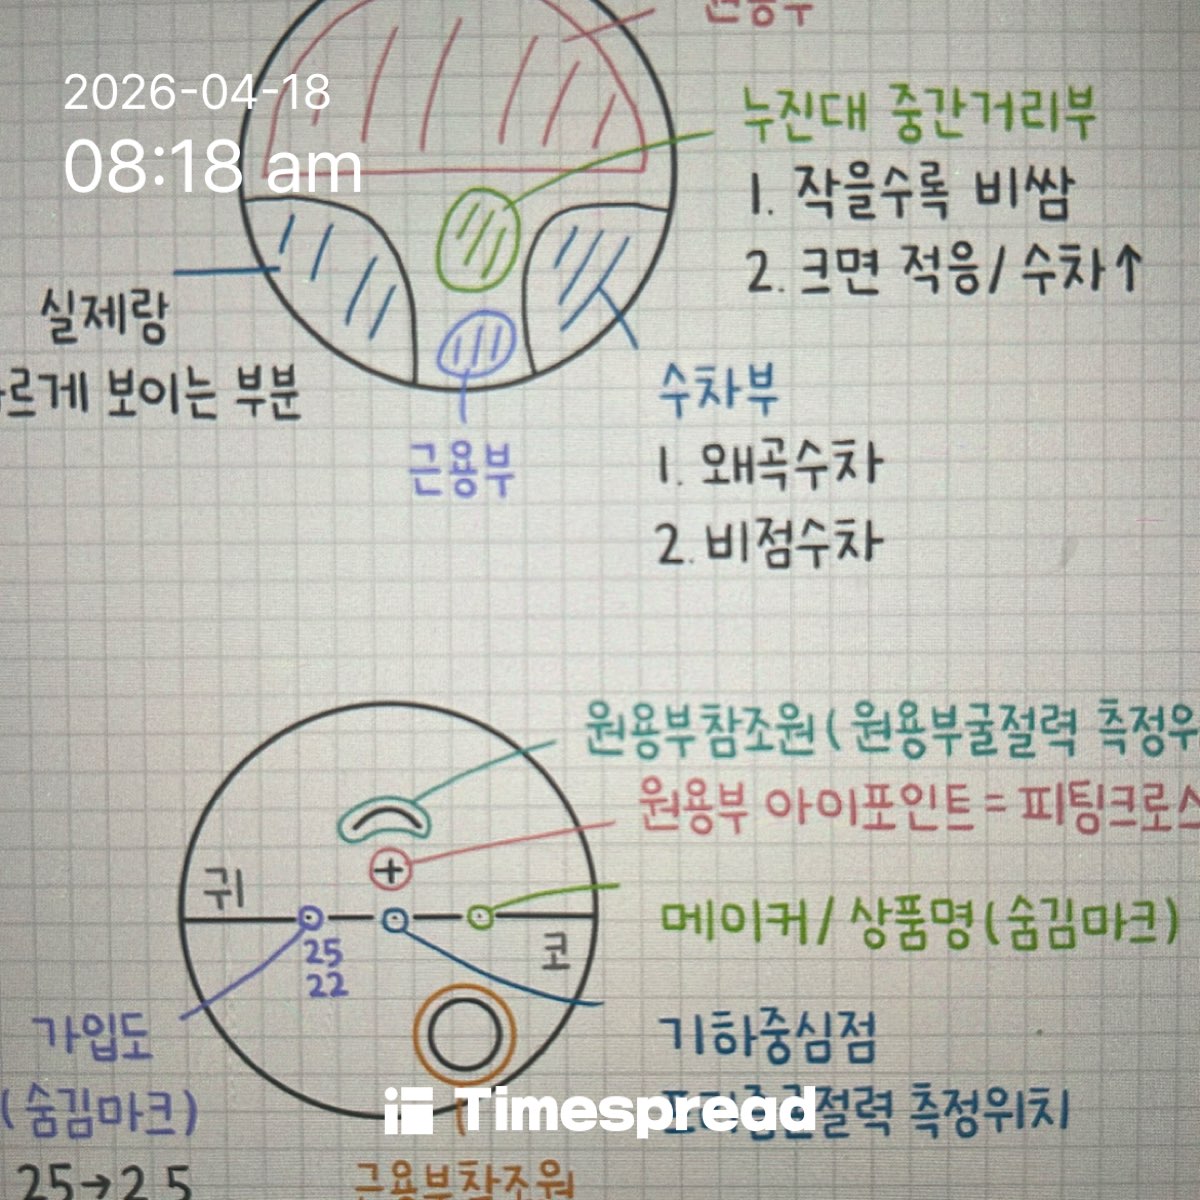 원용부
2026-04-18
08:18 am
누진대 중간거리부
1. 작을수록 비쌈
2. 크면 적응/수차↑
실제랑
르게 보이는 부분
수차부
근용부
1. 왜곡수차
2. 비점수차
원용부참조원(원용부굴절력 측정우
원용부 아이포인트 = 피팅크로스
귀
메이커/상품명(숨김마크)
25
22
코
가입도
(숨김마크)
기하중심점
측정위치
Timespread
25→2.5
근용부참조원